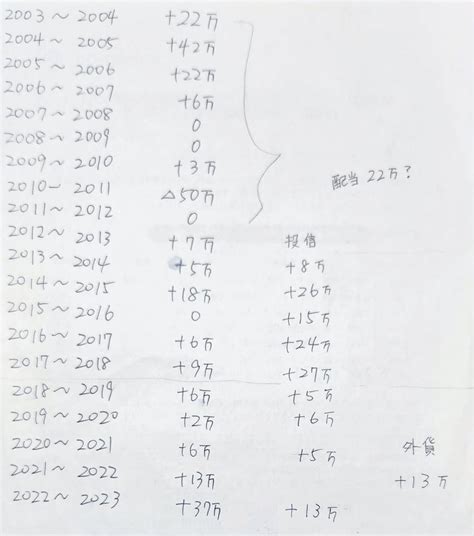 2003〜2004 +22万
2004〜2005 +42万
2005〜2006 +22万
2006〜2007 +6万
2007〜2008 0
2008〜2009 0
2009〜2010 +3万
配当 22万?
2010-2011 △50万
2011〜2012 0
2012〜2013 +7万 投信
2013〜2014 +5万 +8万
2014〜2015 +18万 +26万
2015〜2016 0 +15万
2016〜2017 +6万 +24万
2017〜2018 +9万 +27万
2018〜2019 +6万 +5万
2019〜2020 +2万 +6万
2020〜2021 +6万 +5万 外貨
2021〜2022 +13万 +13万
2022〜2023 +37万 +13万